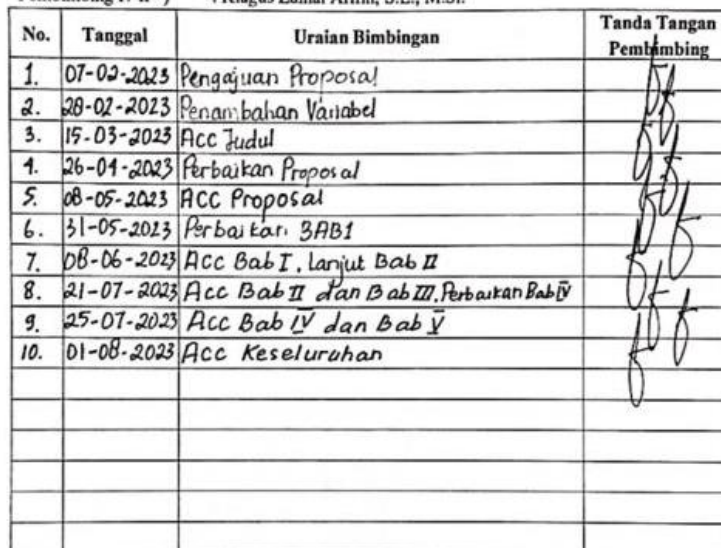 No. Tanggal Uraian Bimbingan Tanda Tangan Pembimbing
1. 07-02-2023 Pengajuan Proposal
2. 28-02-2023 Penambahan Variabel
3. 15-03-2023 Acc Judul
4. 26-04-2023 Perbaikan Proposal
5. 08-05-2023 ACC Proposal
6. 31-05-2023 Perbaikan BAB1
7. 08-06-2023 Acc Bab I, Lanjut Bab II
8. 21-07-2023 Acc Bab II dan Bab III, Perbaikan Bab IV
9. 25-07-2023 Acc Bab IV dan Bab V
10. 01-08-2023 Acc Keseluruhan